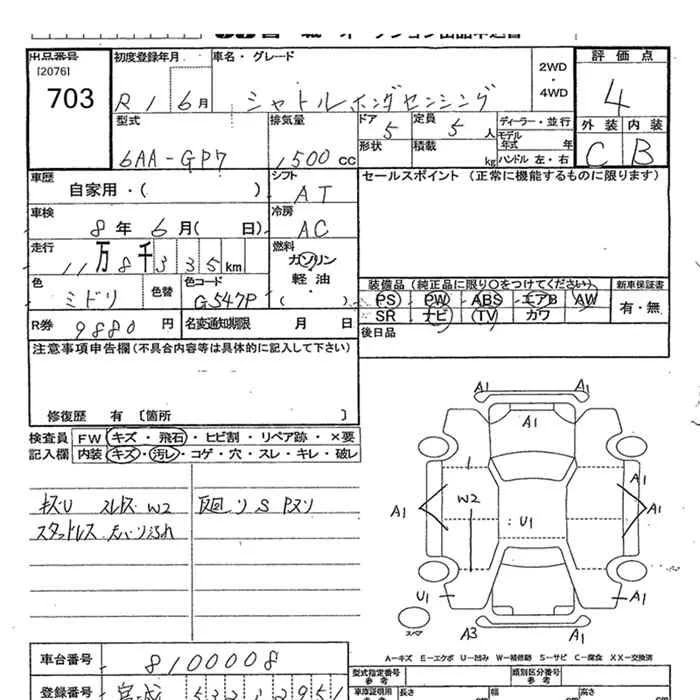 出品番号 初度登録年月 車名・グレード 2WD・4WD 評価点
[2076]
703 R1 6月 シャトルホンダセンシング 4
型式 排気量 ドア 5 定員 5人 ディーラー・並行 外装 内装
モデル年式 年
6AA-GP7 1500cc 形状 積載 kg ハンドル 左・右 C B
車歴 自家用・( ) シフト AT セールスポイント (正常に機能するものに限ります)
車検 8年6月( 日) 冷房 AC
走行 11万8千335km 燃料 ガソリン 軽油 ( )
色 ミドリ 色替 色コード G547P 装備品 (純正品に限り○をつけてください) 新車保証書
PS PW ABS エアB AW 有・無
SR ナビ TV カワ
R券 9880円 名変通知期限 月 日 後日品
注意事項申告欄(不具合内容等は具体的に記入して下さい)
修復歴 有 [箇所 ]
検査員 FW キズ・飛石・ヒビ割・リペア跡・×要
記入欄 内装 キズ・汚レ・コゲ・穴・スレ・キレ・破レ
A1 A1
A1
W2 A1
A1 A1
U1
U1 A1
スペア A3 A1
A-キズ E-エクボ U-凹み W-補修跡 S-サビ C-腐食 XX-交換済
車台番号 8100008 型式指定番号 参考 類別区分番号 参考
登録番号 宮城 532 2951 車庫証明用 参考 長さ cm 幅 cm 高さ cm